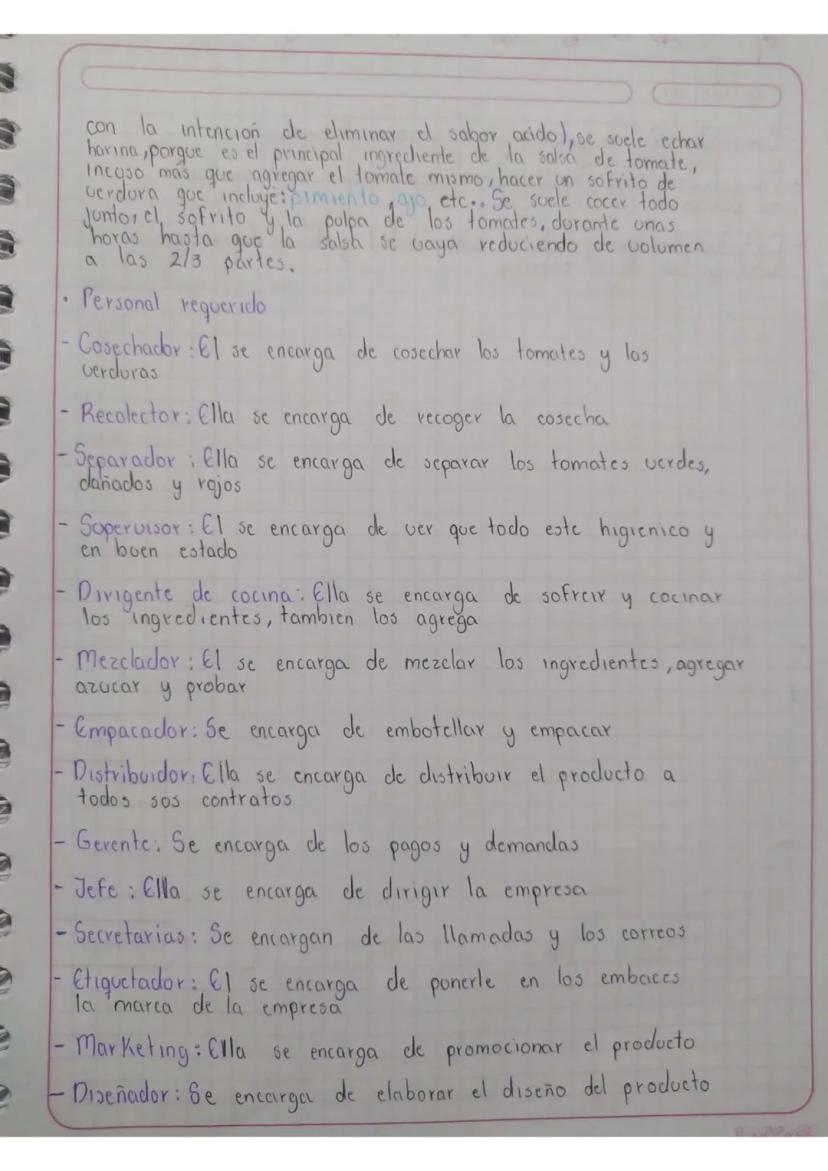 con la intención de eliminar el sabor acido), se suele echar
harina, porque es el principal ingrediente de la salsa de tomate,
incoso más que agregar el tomate mismo, hacer un sofrito de
verdura que incluye: pimiento, ajo, etc.. Se suele cocer todo
junto, el sofrito y la pulpa de los tomates, durante unas
horas hasta que la salsa se vaya reduciendo de volumen
a las 2/3 partes.
• Personal requerido
- Cosechador: El se encarga de cosechar los tomates y las
verduras
- Recolector: Ella se encarga de recoger la cosecha
- Separador: Ella se encarga de separar los tomates verdes,
dañados y rojos
- Supervisor: El se encarga de ver que todo este higienico y
en buen estado
- Dirigente de cocina: Ella se encarga de sofreir y cocinar
los ingredientes, tambien los agrega
- Mezclador: El se encarga de mezclar los ingredientes, agregar
azucar y probar
- Empacador: Se encarga de embotellar y empacar
- Distribuidor: Ella se encarga de distribuir el producto a
todos sus contratos
- Gerente: Se encarga de los pagos y demandas
- Jefe: Ella se encarga de dirigir la empresa
- Secretarias: Se encargan de las llamadas y los correos
- Etiquetador: El se encarga de ponerle en los embaces
la marca de la empresa
- Marketing: Ella se encarga de promocionar el producto
- Diseñador: Se encarga de elaborar el diseño del producto